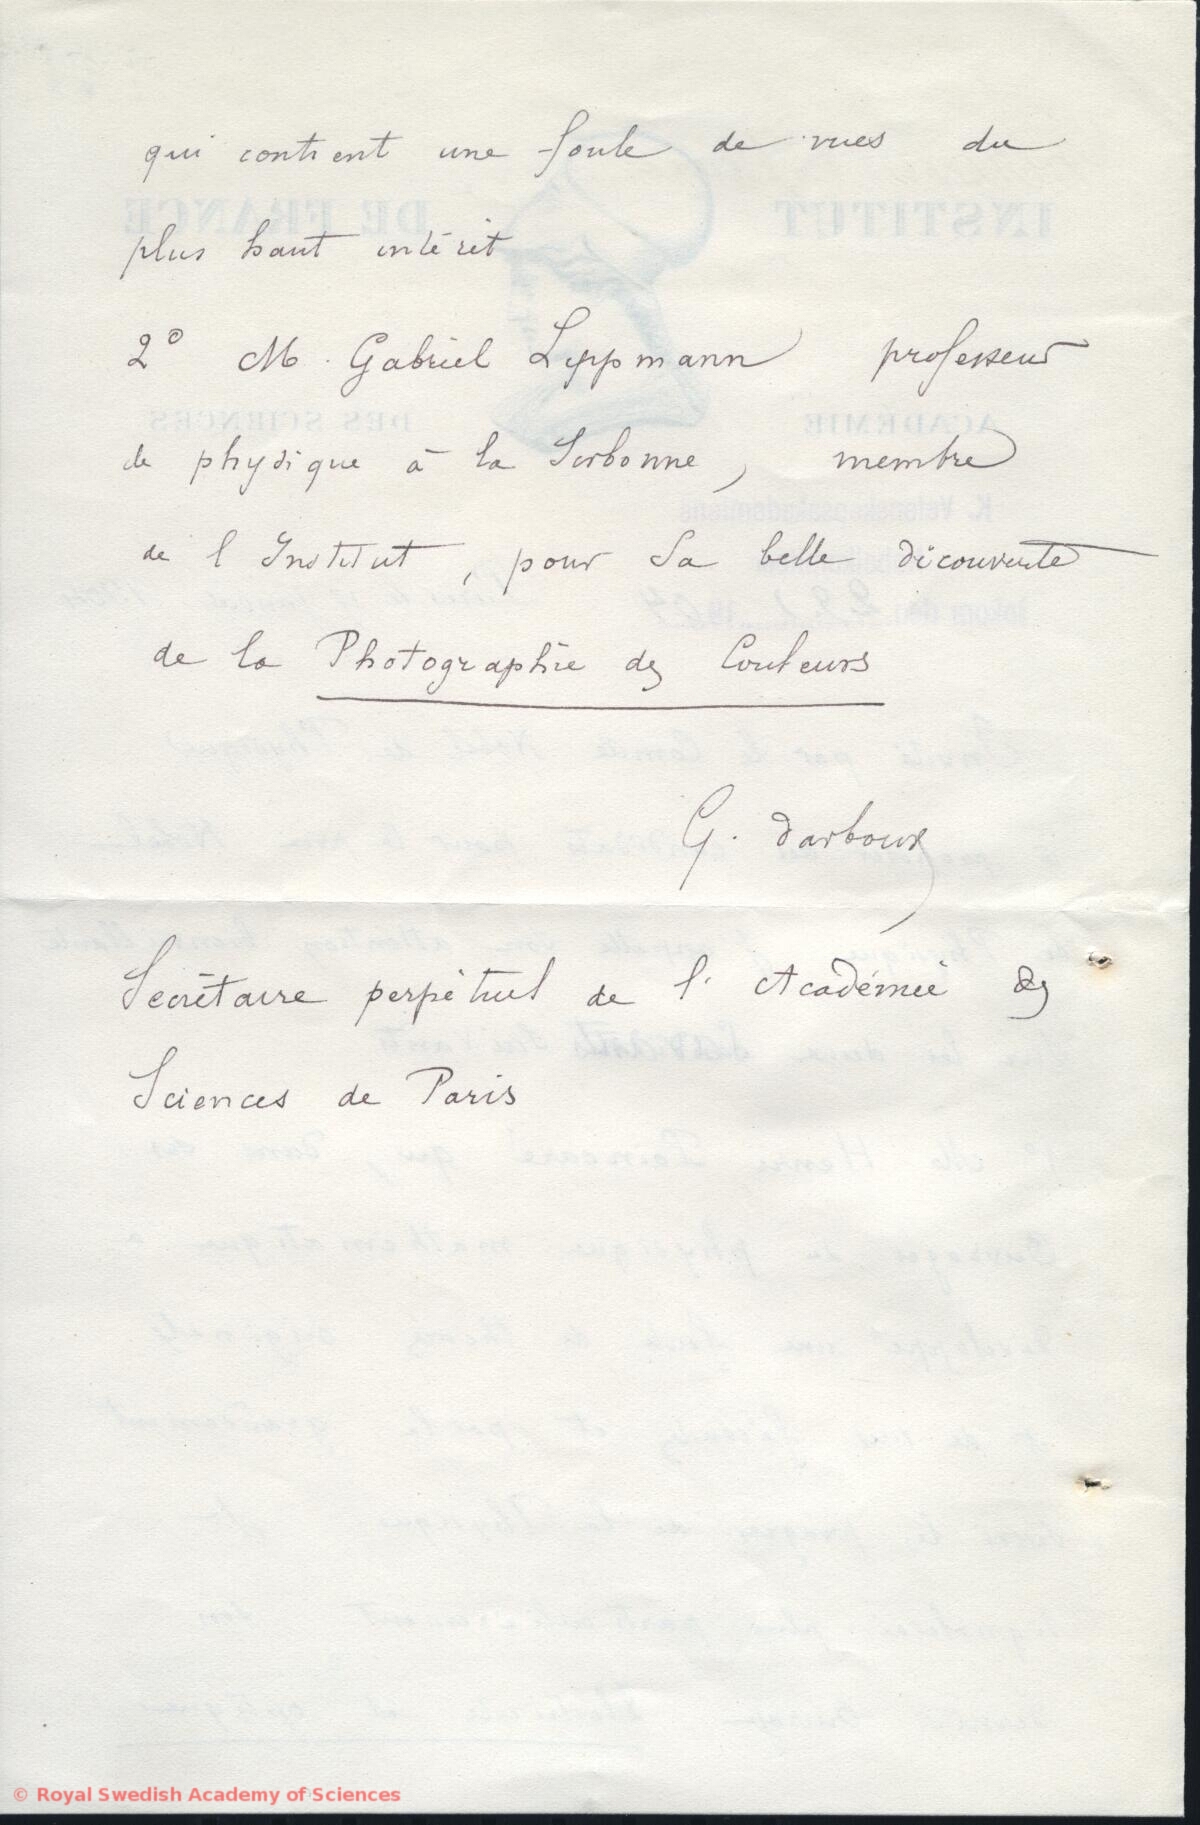 qui contient une foule de vues du
plus haut intérêt
2° M. Gabriel Lippmann professeur
de physique à la Sorbonne, membre
de l'Institut, pour sa belle découverte
de la Photographie des Couleurs
G. Darboux
Secrétaire perpétuel de l'Académie des
Sciences de Paris
© Royal Swedish Academy of Sciences